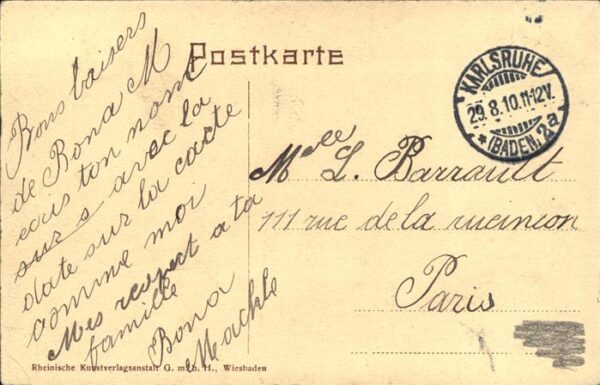 Postkarte
Bons baisers
de Bona M
ecris ton nom
sur s avec la
date sur la cacte
comme moi
Mes respect a ta
famille
Bona
Mackle
KARLSRUHE
29.8.10.11-12V.
* (BADEN.) 2a
Mlle L. Barrault
111 rue de la
Paris
Rheinische Kunstverlagsanstalt G. m. b. H., Wiesbaden